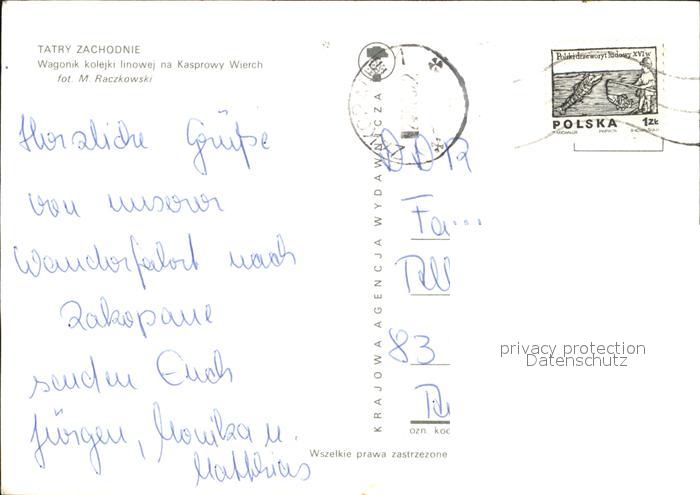 TATRY ZACHODNIE
Wagonik kolejki linowej na Kasprowy Wierch
fot. M. Raczkowski
Herzliche Grüße
von unserer
Wanderfahrt nach
Zakopane
senden Euch
Jürgen, Monika u.
Matthias
KRAJOWA AGENCJA WYDAWNICZA
Polski drzeworyt ludowy XVI w.
POLSKA 1 ZŁ
DDR
Fa...
83
privacy protection
Datenschutz
ozn. koc
Wszelkie prawa zastrzeżone